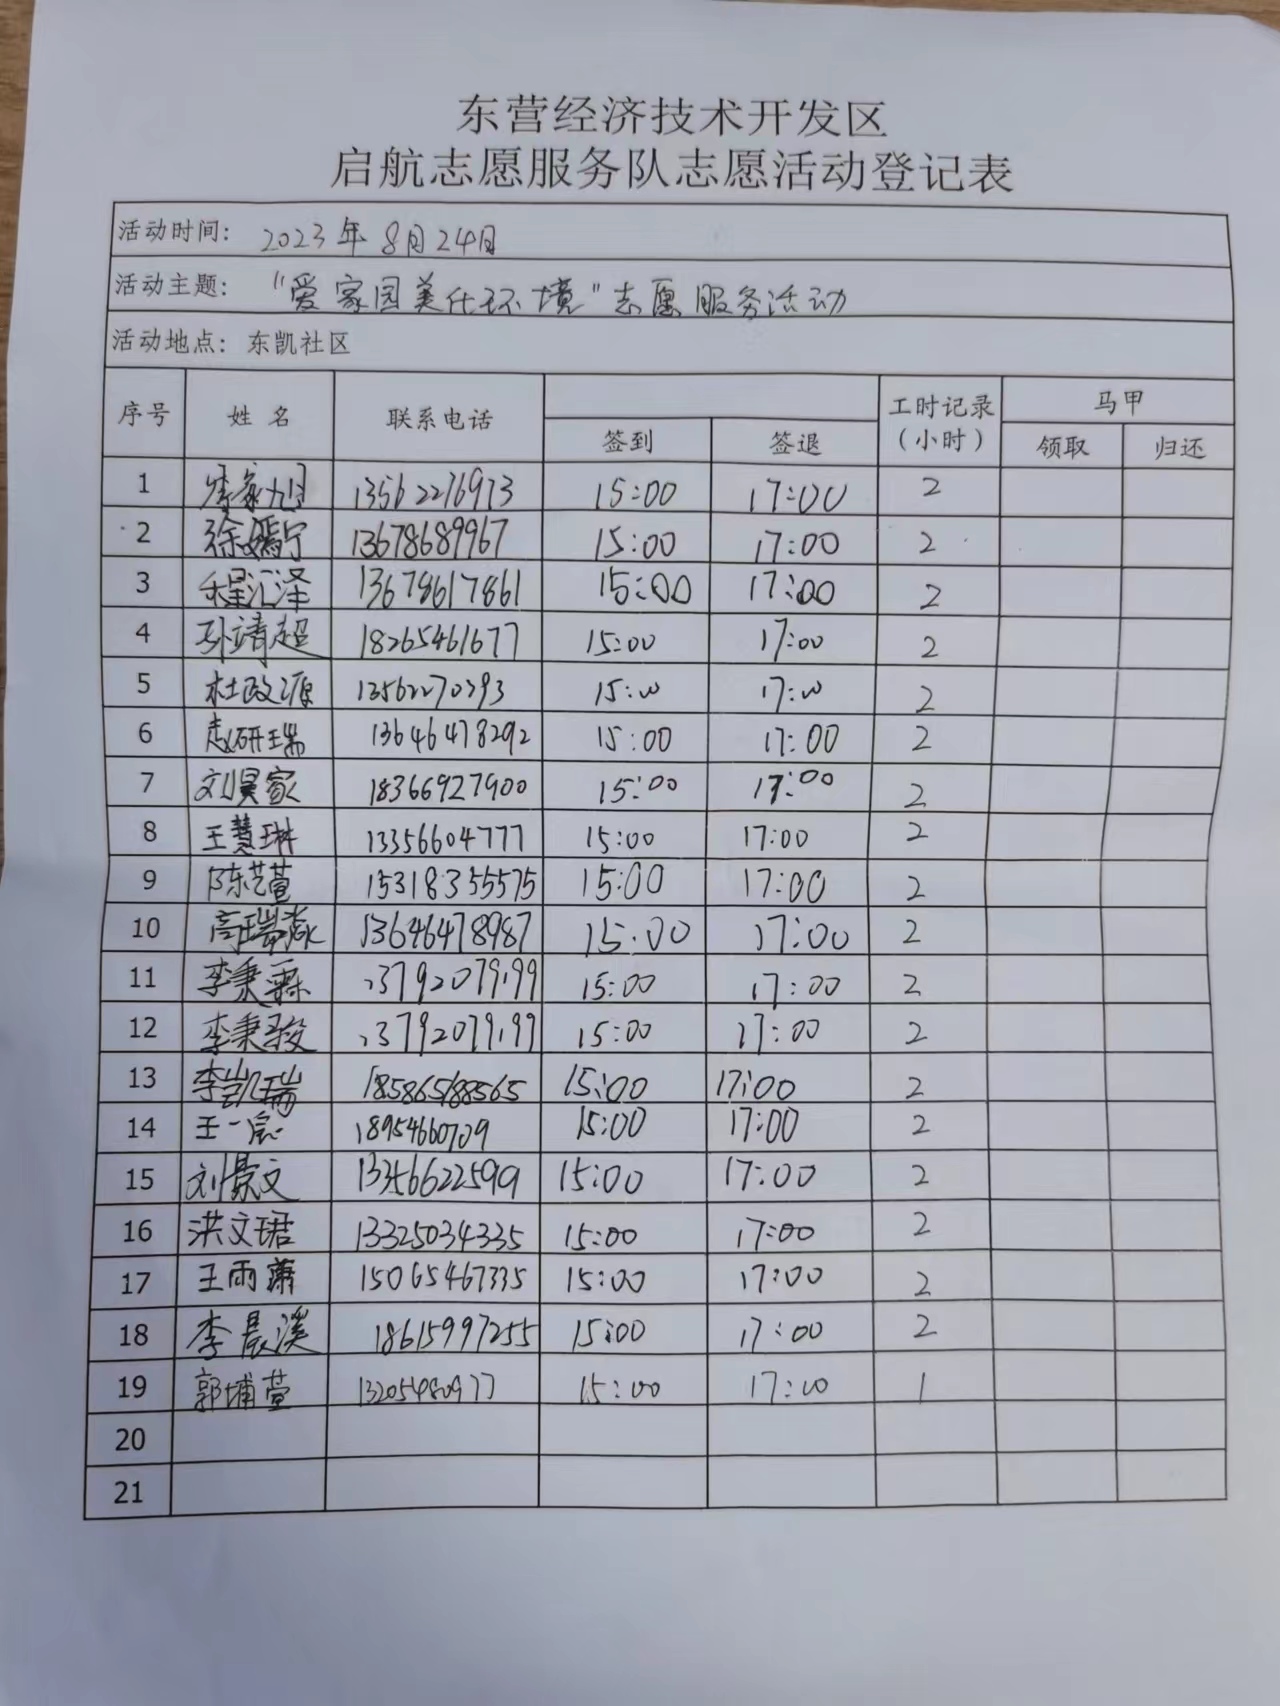 东营经济技术开发区
启航志愿服务队志愿活动登记表
活动时间: 2023年8月24日
活动主题: "爱家园美化环境"志愿服务活动
活动地点: 东凯社区
序号 姓名 联系电话 签到 签退 工时记录(小时) 马甲 领取 归还
1 13562276973 15:00 17:00 2
2 徐嫣宁 13678689967 15:00 17:00 2
3 程汇泽 13678617861 15:00 17:00 2
4 孙靖超 18265461677 15:00 17:00 2
5 杜政源 13562270393 15:00 17:00 2
6 赵研瑞 13646478292 15:00 17:00 2
7 刘昊家 18366927900 15:00 17:00 2
8 王慧琳 13356604777 15:00 17:00 2
9 陈艺萱 15318355575 15:00 17:00 2
10 高瑞淼 13646478987 15:00 17:00 2
11 李秉霖 13792079199 15:00 17:00 2
12 李秉骏 13792079199 15:00 17:00 2
13 李凯瑞 18586588565 15:00 17:00 2
14 王一宸 18954660709 15:00 17:00 2
15 刘景文 13356622599 15:00 17:00 2
16 洪文珺 13325034335 15:00 17:00 2
17 王雨萧 15065467335 15:00 17:00 2
18 李晨溪 18615997255 15:00 17:00 2
19 郭埔萱 13205480977 15:00 17:00 1
20
21